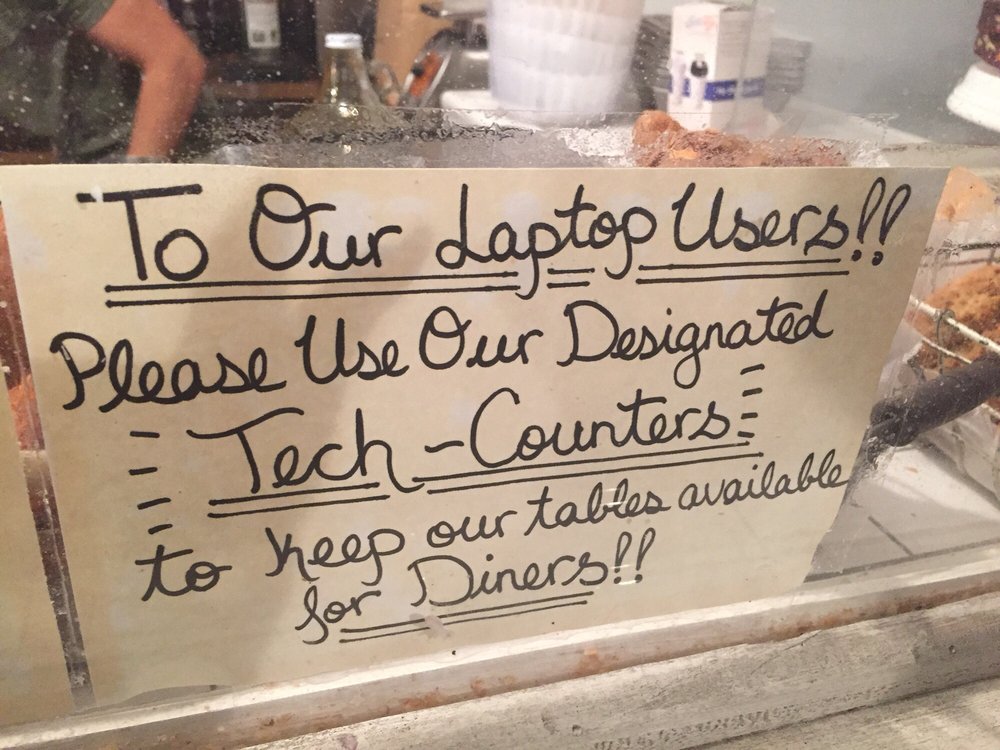 To Our Laptop Users!!
Please Use Our Designated
Tech-Counters
to keep our tables available
for Diners!!